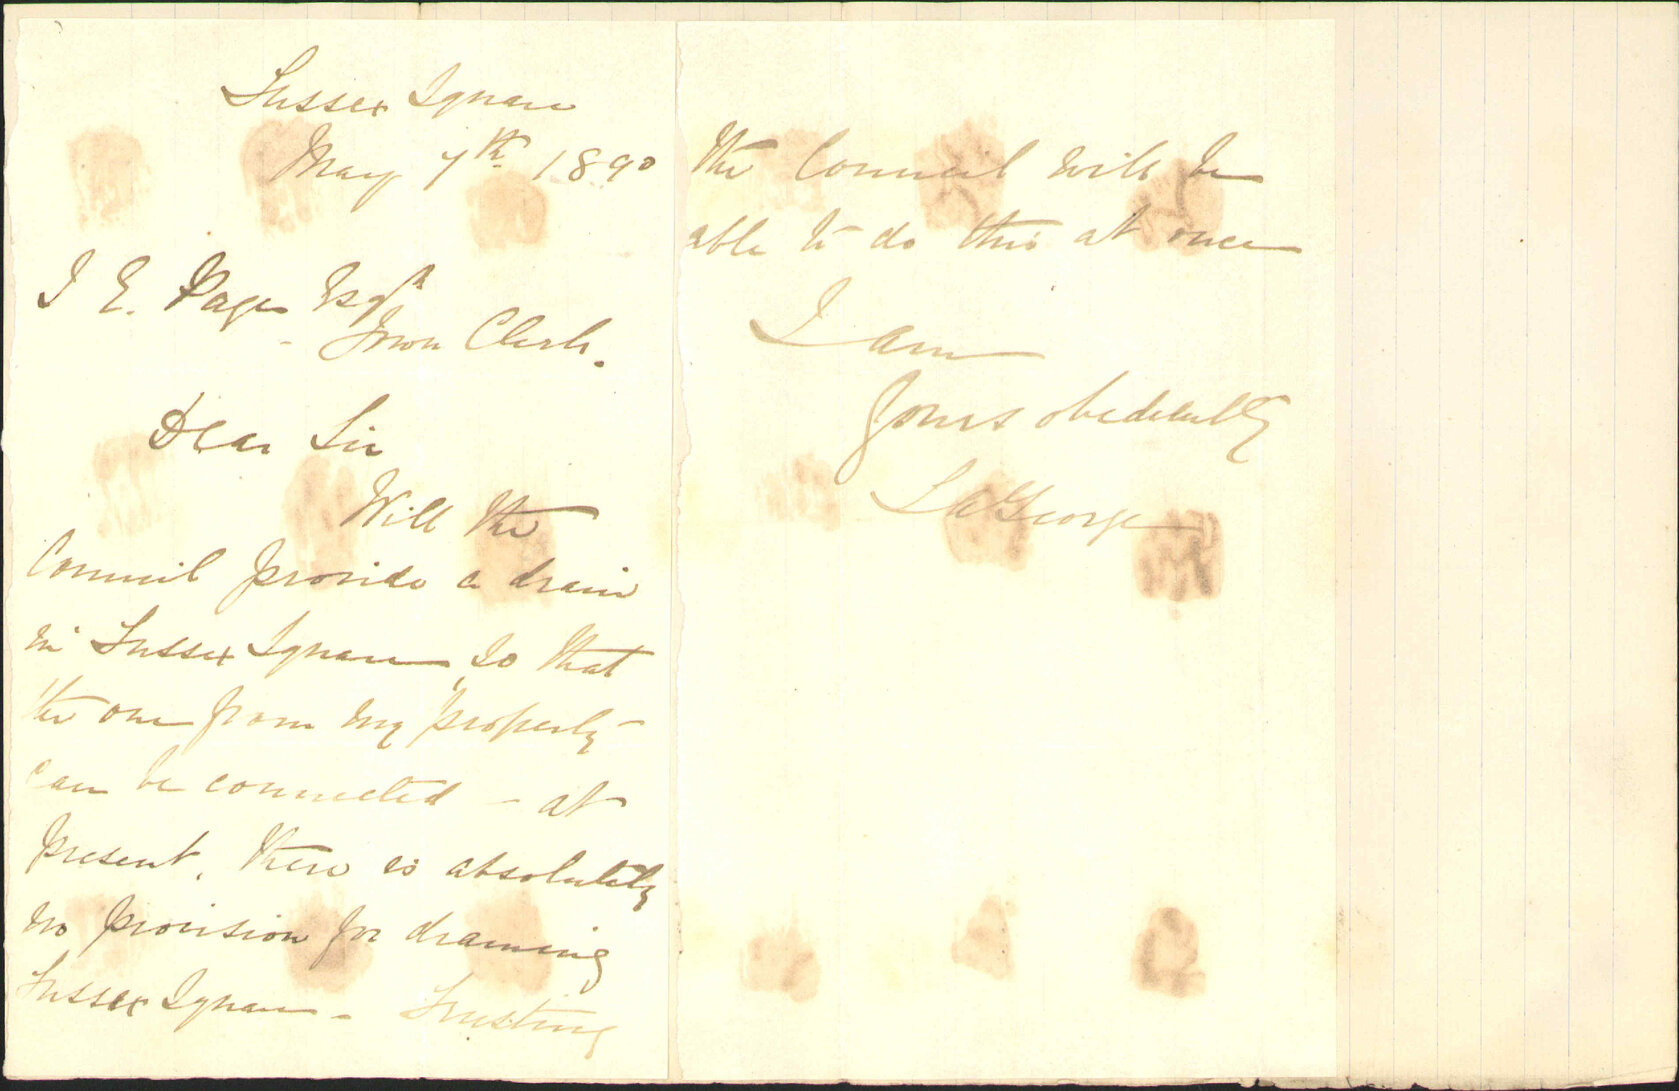 Sussex Square
May 7th 1890
J E. Page Esqr
- Town Clerk.
Dear Sir
Will the
Council provide a drain
in Sussex Square, so that
the one from my property
can be connected - at
present, there is absolutely
no provision for draining
Sussex Square - Trusting
the Council will be
able to do this at once
I am
Yours obediently
George